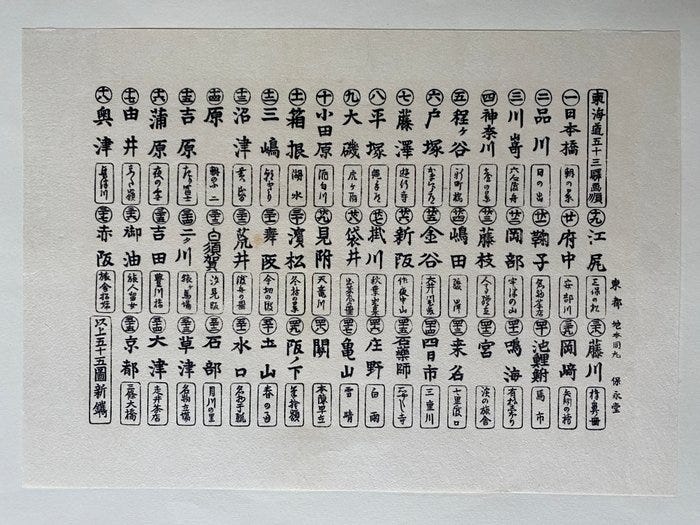 東海道五十三驛画順
一 日本橋 朝の景
二 品川 日の出
三 川嵜 六郷渡舟
四 神奈川 台の景
五 程ヶ谷 新町橋
六 戸塚
七 藤澤 遊行寺
八 平塚 縄手道
九 大磯 虎ヶ雨
十 小田原 酒匂川
十一 箱根 湖水
十二 三嶋 朝きり
十三 沼津 黄昏
十四 原 朝のふじ
十五 吉原 左り富士
十六 蒲原 夜の雪
十七 由井 さつた嶺
十八 奥津 興津川
十九 江尻 三保の松
廿 府中 安部川
廿一 鞠子 名物茶店
廿二 岡部 宇津の山
廿三 藤枝
廿四 嶋田 駿岸
廿五 金谷 大井川遠岸
廿六 新阪 佐夜中山
廿七 掛川 秋葉山遠望
廿八 袋井 出茶屋
廿九 見附 天竜川
三十 濱松 冬枯の景
三十一 舞阪 今切の渡
三十二 荒井 渡舟の景
三十三 白須賀 汐見阪
三十四 二タ川 猿ヶ馬場
三十五 吉田 豊川橋
三十六 御油 旅人留女
三十七 赤阪 旅舎招婦
三十八 藤川 棒鼻
三十九 岡﨑 矢矧の橋
四十 池鯉鮒 馬市
四十一 鳴海 有松絞り
四十二 宮 濱の旅舎
四十三 桒名 七里渡口
四十四 四日市 三重川
四十五 石薬師 石やくし寺
四十六 庄野 白雨
四十七 亀山 雪晴
四十八 関 本陣早立
四十九 阪ノ下 筆捨嶺
五十 土山 春の雨
五十一 水口 名物干瓢
五十二 石部 目川の里
五十三 草津 名物立場
五十四 大津 走井茶店
五十五 京都 三條大橋
以上五十五圖新鐫
東都 地本問丸 保永堂